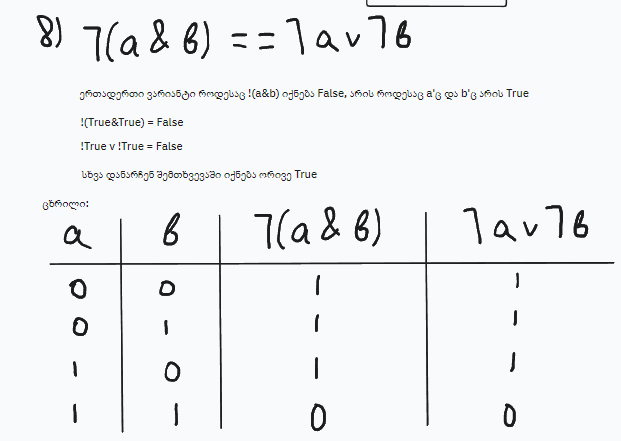 8) ⅂(a & b) == ⅂a v ⅂b
ერთადერთი ვარიანტი როდესაც !(a&b) იქნება False, არის როდესაც a'ც და b'ც არის True
!(True&True) = False
!True v !True = False
სხვა დანარჩენ შემთხვევაში იქნება ორივე True
ცხრილი:
a b ⅂(a & b) ⅂a v ⅂b
0 0 1 1
0 1 1 1
1 0 1 1
1 1 0 0